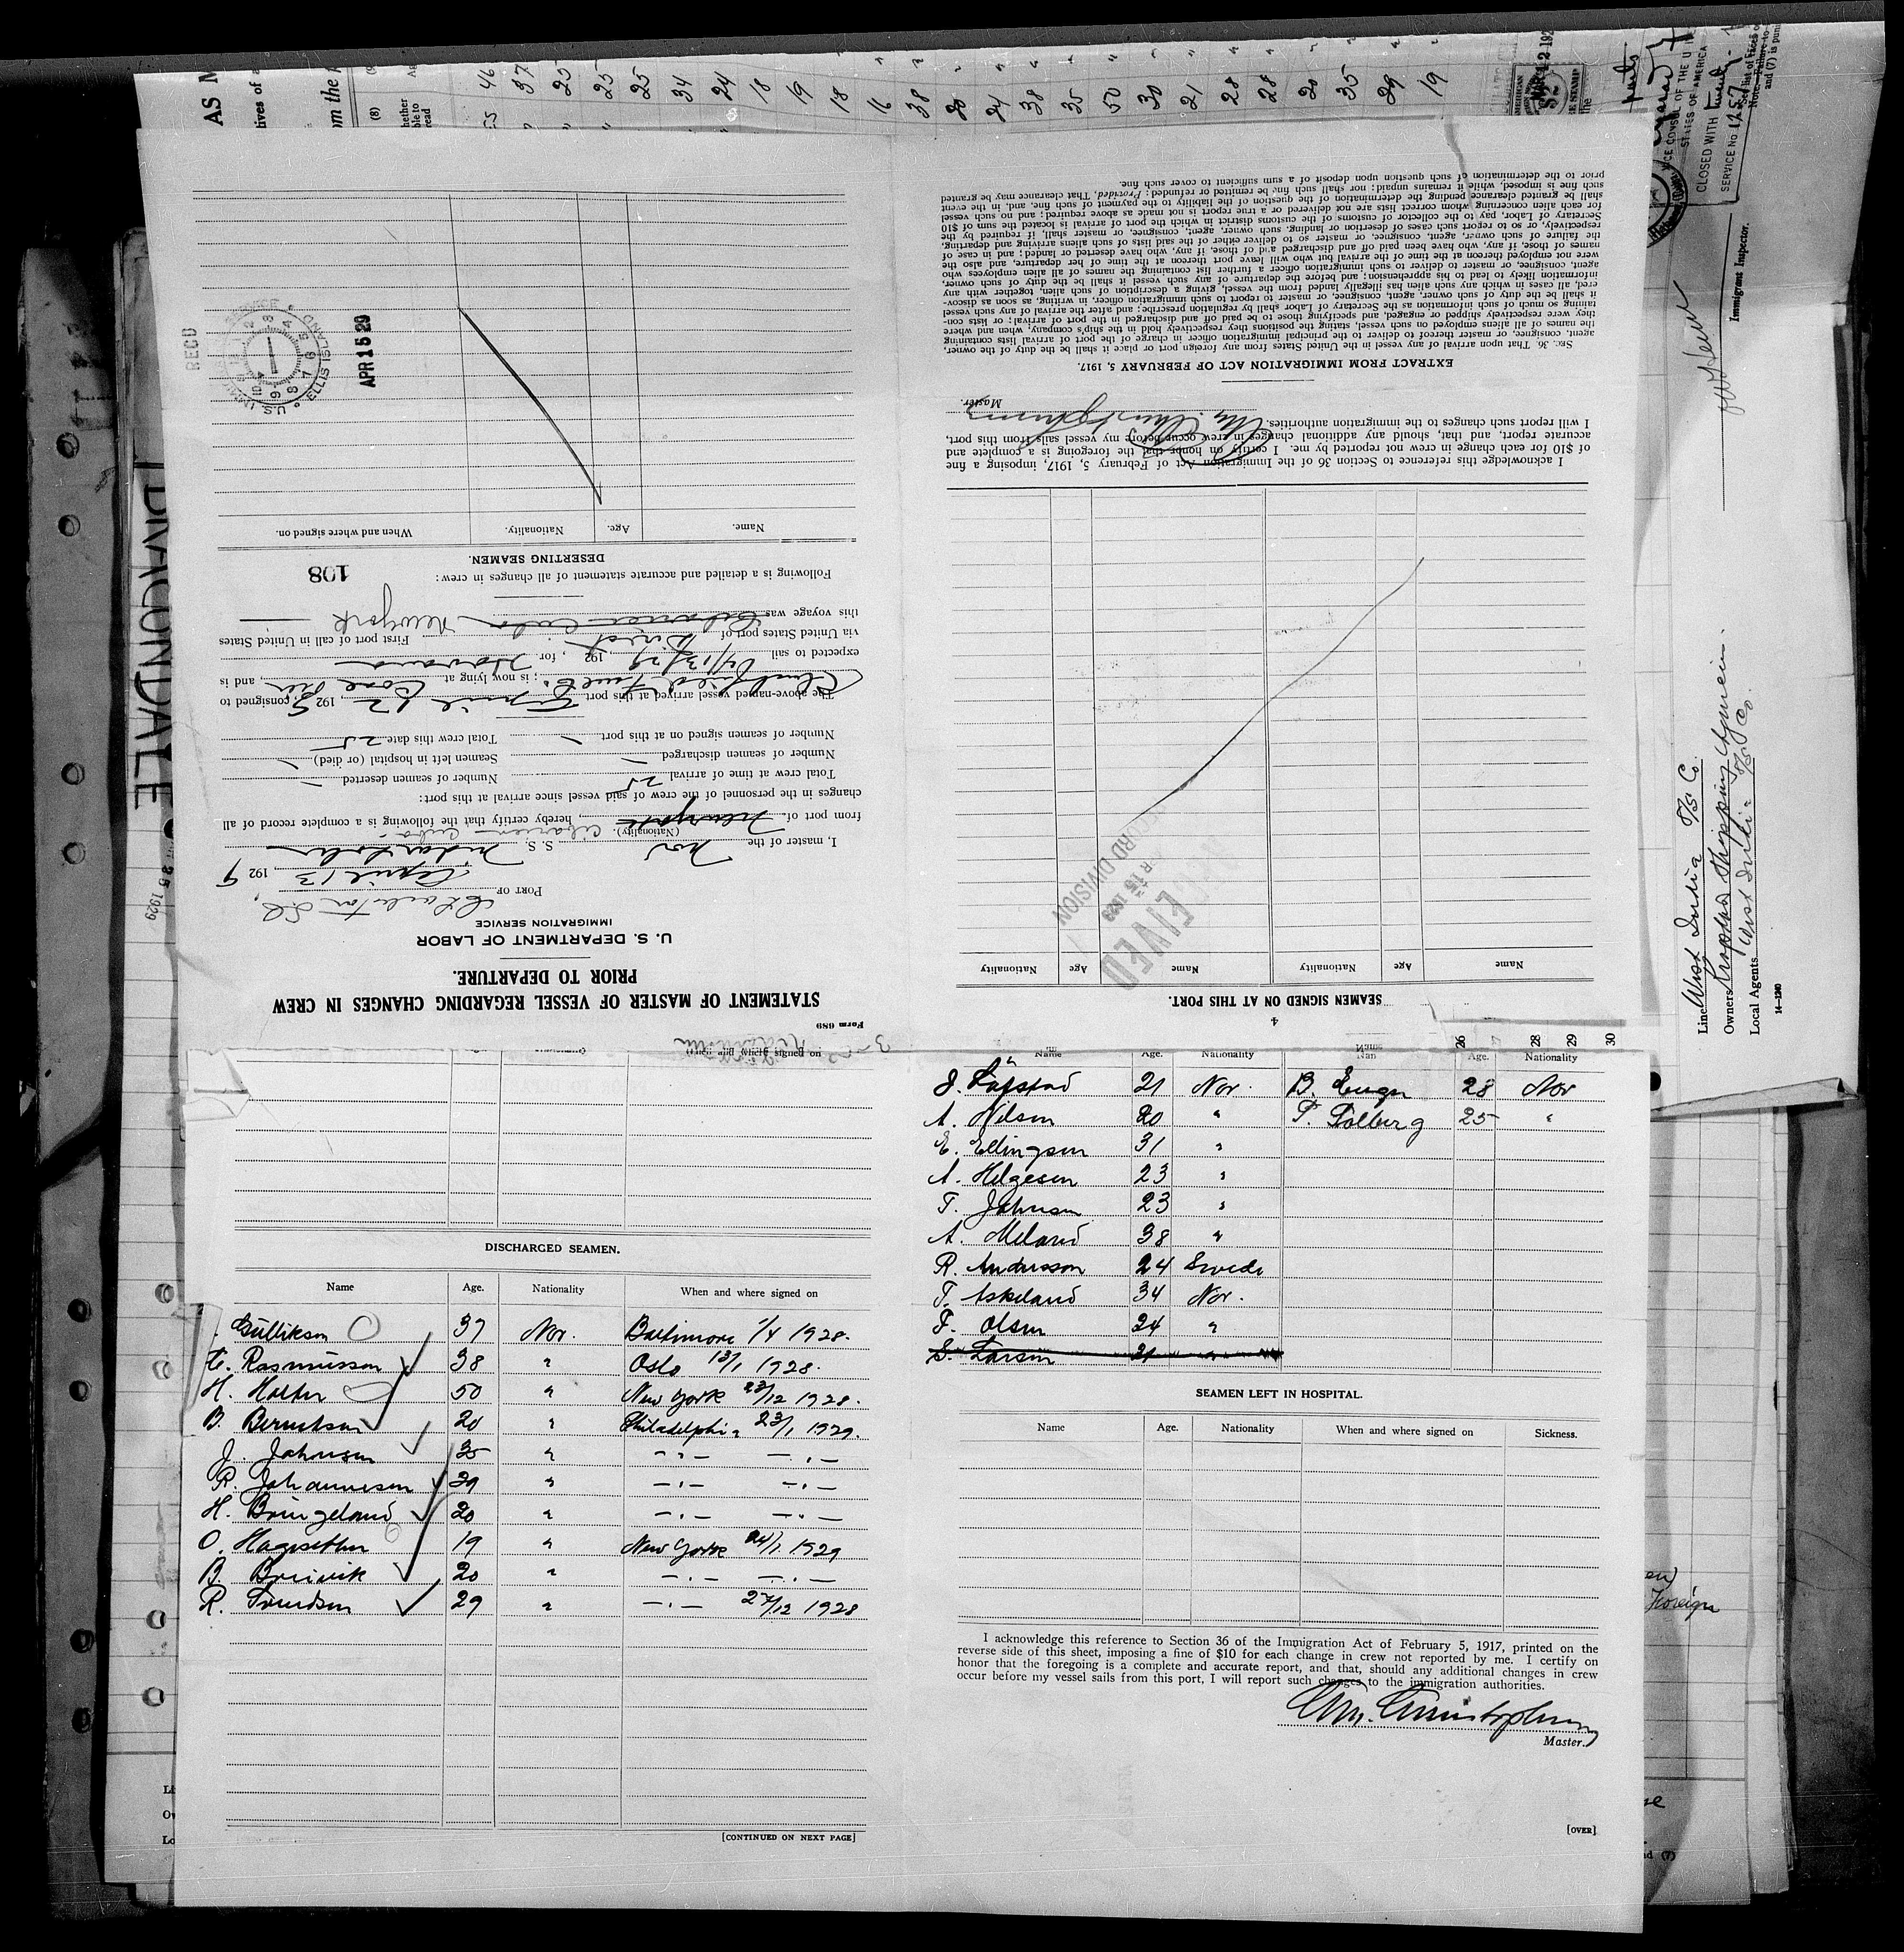 Form 689
STATEMENT OF MASTER OF VESSEL REGARDING CHANGES IN CREW
PRIOR TO DEPARTURE.
U. S. DEPARTMENT OF LABOR
IMMIGRATION SERVICE
PORT OF
April 13, 1929
I, master of the Nor S. S.
(Nationality).
from port of New York, hereby certify that the following is a complete record of all
changes in the personnel of the crew of said vessel since arrival at this port:
Total crew at time of arrival 25 Number of seamen deserted
Number of seamen discharged Seamen left in hospital (or died)
Number of seamen signed on at this port Total crew this date 25
The above-named vessel arrived at this port April 12, 192 consigned to
; is now lying at , and is
expected to sail 4/13/29 192 , for Havana
via United States port of Direct First port of call in United States
this voyage was New York
Following is a detailed and accurate statement of all changes in crew:
108
DESERTING SEAMEN.
Name. Age. Nationality. When and where signed on.
RECD
APR 15 29
U.S. ELLIS ISLAND
SEAMEN SIGNED ON AT THIS PORT.
Name Age Nationality Name Age Nationality
RECEIVED
RECORD DIVISION
I acknowledge this reference to Section 36 of the Immigration Act of February 5, 1917, imposing a fine
of $10 for each change in crew not reported by me. I certify on honor that the foregoing is a complete and
accurate report, and that, should any additional changes in crew occur before my vessel sails from this port,
I will report such changes to the immigration authorities.
Master.
EXTRACT FROM IMMIGRATION ACT OF FEBRUARY 5, 1917.
SEC. 36. That upon arrival of any vessel in the United States from any foreign port or place it shall be the duty of the owner,
agent, consignee, or master thereof to deliver to the principal immigration officer in charge of the port of arrival lists containing
the names of all aliens employed on such vessel, stating the positions they respectively hold in the ship's company, when and where
they were respectively shipped or engaged, and specifying those to be paid off and discharged in the port of arrival; or lists con-
taining so much of such information as the Secretary of Labor shall by regulation prescribe; and after the arrival of any such vessel
it shall be the duty of such owner, agent, consignee, or master to report to such immigration officer, in writing, as soon as discov-
ered, all cases in which any such alien has illegally landed from the vessel, giving a description of such alien, together with any
information likely to lead to his apprehension; and before the departure of any such vessel it shall be the duty of such owner,
agent, consignee, or master to deliver to such immigration officer a further list containing the names of all alien employees who
were not employed thereon at the time of the arrival but who will leave port thereon at the time of her departure, and also the
names of those, if any, who have been paid off and discharged and of those, if any, who have deserted or landed; and in case of
the failure of such owner, agent, consignee, or master so to deliver either of the said lists of such aliens arriving and departing,
respectively, or so to report such cases of desertion or landing, such owner, agent, consignee, or master shall, if required by the
Secretary of Labor, pay to the collector of customs of the customs district in which the port of arrival is located the sum of $10
for each alien concerning whom correct lists are not delivered or a true report is not made as above required; and no such vessel
shall be granted clearance pending the determination of the question of the liability to the payment of such fine, and, in the event
such fine is imposed, while it remains unpaid; nor shall such fine be remitted or refunded: Provided, That clearance may be granted
prior to the determination of such question upon deposit of a sum sufficient to cover such fine.
DISCHARGED SEAMEN.
Name Age. Nationality When and where signed on
Gullikson 37 Nor. Baltimore 1/4 1928.
Rasmussen 38 " Oslo 13/1 1928.
H. Holter 50 " New York 23/12 1928.
B. Berntsen 20 " Philadelphia 23/1 1929.
J. Johnsen 35 " -"- -"-
R. Johannesen 29 " -"- -"-
H. Bringeland 20 " -"- -"-
O. Hagesether 19 " New York 24/1 1929
B. Breivik 20 " -"- -"-
R. Svendsen 29 " -"- 27/12 1928
[CONTINUED ON NEXT PAGE]
Name Age. Nationality Age. Nationality
J. Lofstad 21 Nor. B. Enger 28 Nor
A. Nilsen 20 " P. Solberg 25 "
E. Ellingsen 31 "
A. Helgesen 23 "
T. Johnsen 23 "
A. Meland 38 "
R. Andersson 24 Swede
T. Askeland 34 Nor.
F. Olsen 24 "
S. Larsen 21 "
SEAMEN LEFT IN HOSPITAL.
Name Age. Nationality When and where signed on Sickness.
I acknowledge this reference to Section 36 of the Immigration Act of February 5, 1917, printed on the
reverse side of this sheet, imposing a fine of $10 for each change in crew not reported by me. I certify on
honor that the foregoing is a complete and accurate report, and that, should any additional changes in crew
occur before my vessel sails from this port, I will report such changes to the immigration authorities.
Chr. Christophersen
Master.
[OVER]
Line West India S/S Co.
Owners
Local Agents West India S/S Co.
14-1240
Immigrant Inspector.
VICE CONSUL OF THE U
STATES OF AMERICA
CLOSED WITH
SERVICE No 1257
DRACONDALE
46
37
25
25
25
34
24
18
19
18
16
38
20
24
38
35
50
30
21
28
28
20
35
29
19
26
28
29
30
Foreign